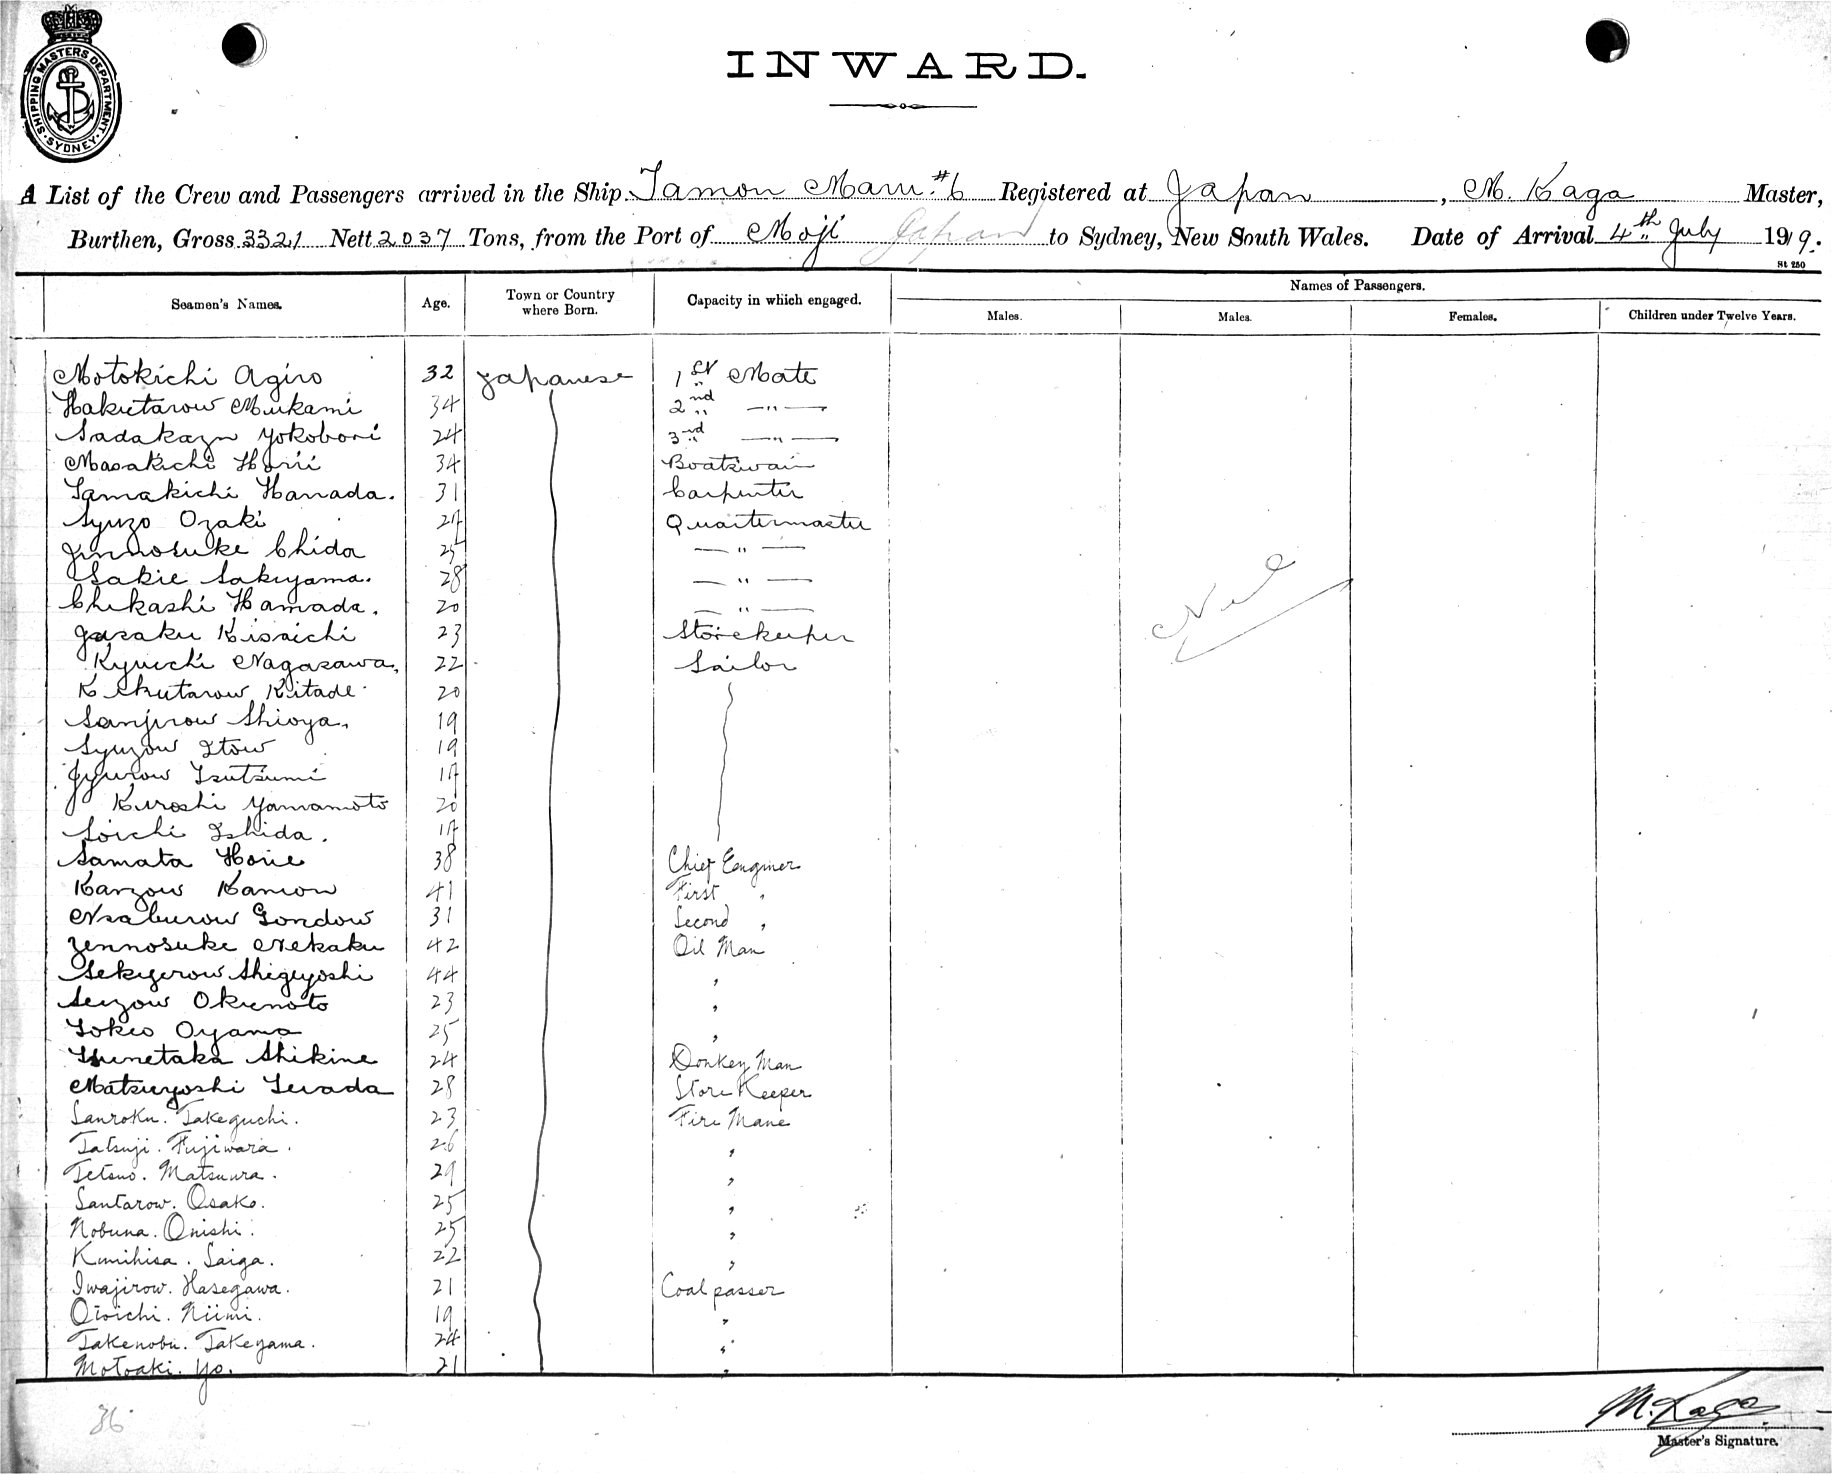 SHIPPING MASTERS DEPARTMENT. SYDNEY.
INWARD.
A List of the Crew and Passengers arrived in the Ship Tamon Maru #6 Registered at Japan, M. Kaga Master,
Burthen, Gross 3321 Nett 2037 Tons, from the Port of Moji Japan to Sydney, New South Wales. Date of Arrival 4th July 1919.
St 250
Seamen's Names. Age. Town or Country where Born. Capacity in which engaged. Names of Passengers.
Males. Males. Females. Children under Twelve Years.
Motokichi Agiro 32 Japanese 1st Mate
Hakutarow Mukami 34 2nd —"—
Sadakazu Yokobori 24 3rd —"—
Masakichi Horii 34 Boatswain
Tamakichi Hanada. 31 Carpenter
Syuzo Ozaki 24 Quartermaster
Jinnosuke Chida 25 —"—
Sakie Sakiyama. 28 —"—
Chikashi Hamada. 20 —"—
Gusaku Kisaichi 23 Storekeeper
Kyuichi Nagasawa, 22 Sailor
Kikutarow Kitade 20
Sanjirow Shioya. 19
Syuzow Itow 19
Jyurow Tsutsumi 17
Kuroshi Yamamoto 20
Soichi Ishida. 17
Samata Horie 38 Chief Engineer
Kanzow Kamon 41 First "
Nsaburow Gondow 31 Second "
Zennosuke Nekaku 42 Oil Man
Sekyerow Shigeyoshi 44 "
Seizow Okumoto 23 "
Tokio Oyama 25 "
Tsunetaka Shikine 24 Donkey Man
Matsuyoshi Terada 28 Store Keeper
Sanroku. Takeguchi. 23 Fire Mane
Tatsuji. Fujiwara. 26 "
Tetsuo. Matsuura. 29 "
Santarow. Osako. 25 "
Nobuna. Onishi. 25 "
Kunihisa. Saiga. 22 "
Iwajirow. Hasegawa. 21 Coal passer
Otoichi. Niimi. 19 "
Takenobu. Takeyama. 24 "
Motoaki. Yo. 21 "
Nil
36
M. Kaga
Master's Signature.